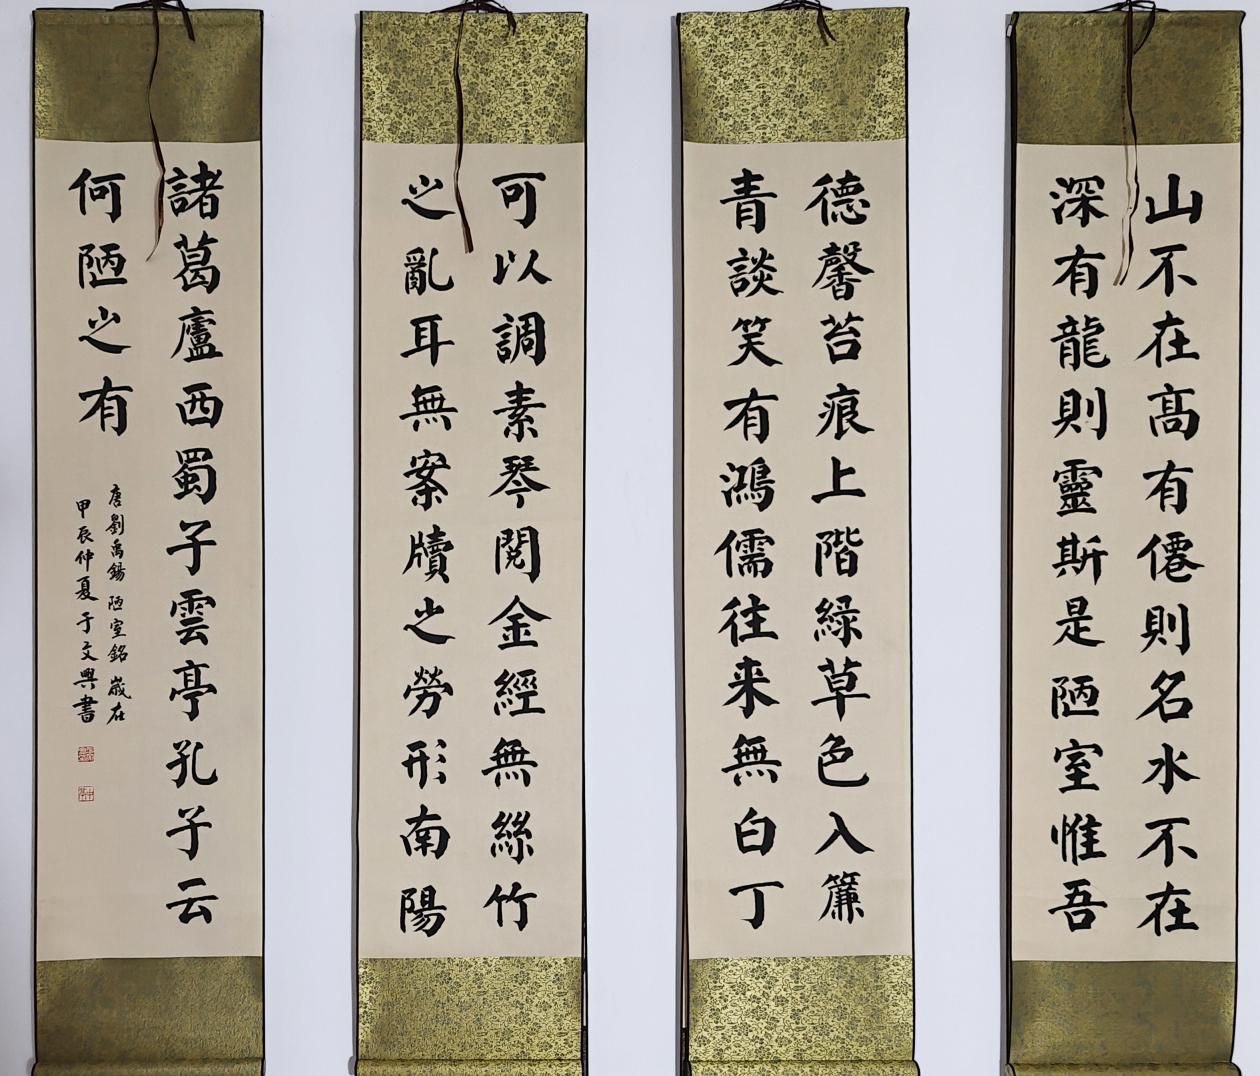 山不在高有僊則名水不在
深有龍則靈斯是陋室惟吾
德馨苔痕上階緑草色入簾
青談笑有鴻儒往来無白丁
可以調素琴閲金經無絲竹
之亂耳無案牘之勞形南陽
諸葛廬西蜀子雲亭孔子云
何陋之有
唐劉禹錫陋室銘歲在
甲辰仲夏于文興書